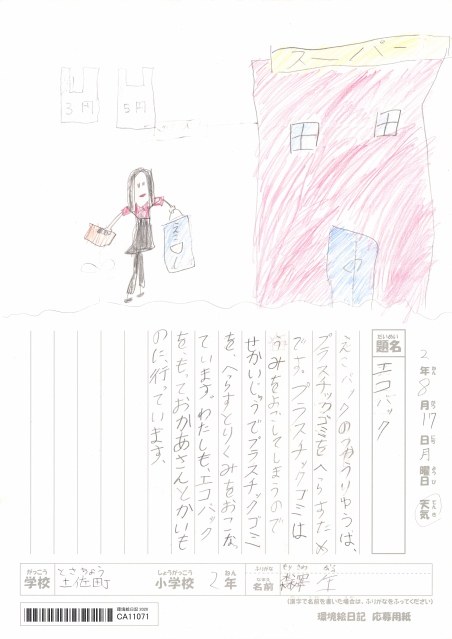 スーパー
3円
5円
えコ
だいめい
題名
エコバック
2年8月17日月曜日
天気
えコバックのつかうりゆうは、
プラスチックゴミをへらすため
です。プラスチックゴミは
うみをよごしてしまうので
せかいじゅうでプラスチックゴミ
を、へらすとりくみをおこなっ
ています。わたしも、エコバック
を、もっておかあさんとかいも
のに、行っています。
がっこう
学校
とさちょう
土佐町
しょうがっこう
小学校
2年
ふりがな
名前
(漢字で名前を書いた場合は、ふりがなをふってください)
環境絵日記2020
CA11071
環境絵日記 応募用紙